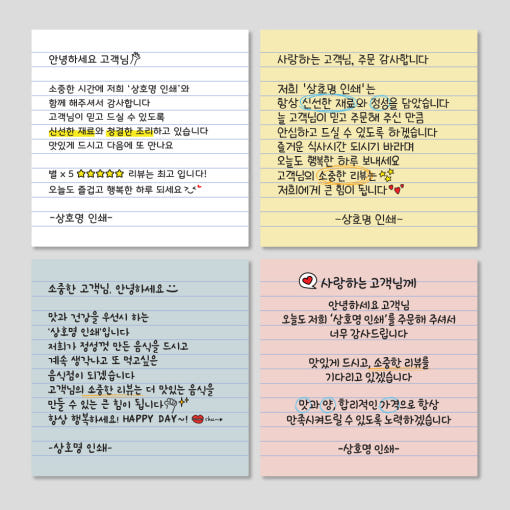 안녕하세요 고객님
소중한 시간에 저희 '상호명 인쇄'와
함께 해주셔서 감사합니다
고객님이 믿고 드실 수 있도록
신선한 재료와 청결한 조리하고 있습니다
맛있게 드시고 다음에 또 만나요
별 x 5 ★★★★★ 리뷰는 최고 입니다!
오늘도 즐겁고 행복한 하루 되세요
-상호명 인쇄-
사랑하는 고객님, 주문 감사합니다
저희 '상호명 인쇄'는
항상 신선한 재료와 정성을 담았습니다
늘 고객님이 믿고 주문해 주신 만큼
안심하고 드실 수 있도록 하겠습니다
즐거운 식사시간 되시기 바라며
오늘도 행복한 하루 보내세요
고객님의 소중한 리뷰는
저희에게 큰 힘이 됩니다
-상호명 인쇄-
소중한 고객님, 안녕하세요
맛과 건강을 우선시 하는
'상호명 인쇄'입니다
저희가 정성껏 만든 음식을 드시고
계속 생각나고 또 먹고싶은
음식점이 되겠습니다
고객님의 소중한 리뷰는 더 맛있는 음식을
만들 수 있는 큰 힘이 됩니다
항상 행복하세요! HAPPY DAY~! chu~
-상호명 인쇄-
사랑하는 고객님께
안녕하세요 고객님
오늘도 저희 '상호명 인쇄'를 주문해 주셔서
너무 감사드립니다
맛있게 드시고, 소중한 리뷰를
기다리고 있겠습니다
맛과 양, 합리적인 가격으로 항상
만족시켜드릴 수 있도록 노력하겠습니다
-상호명 인쇄-